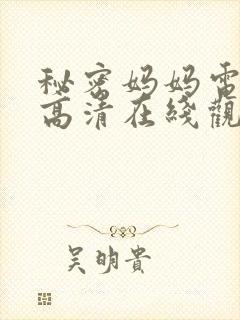 秘密妈妈電
高清在綫觀
吴明貴